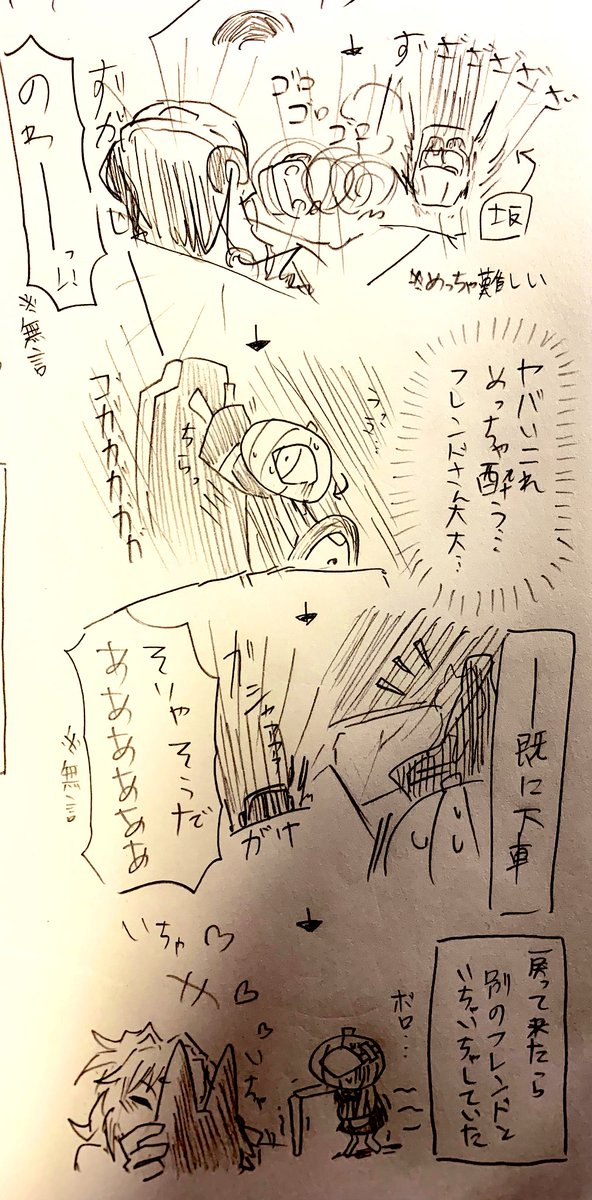 ずざざざざざ
坂
※めっちゃ難しい
ゴロ
ゴロ
ゴロ
ずが
のわーーっ!!
※無言
ヤバいこれ
めっちゃ酔う…
フレンドさん大丈…
ちらっ
ゴガガガガガ
既に下車
ガシャァァ
がけ
そりゃそうで
ああああああ
※無言
戻って来たら
別のフレンドと
いちゃいちゃしていた
ボロ…
いちゃ♡
いちゃ